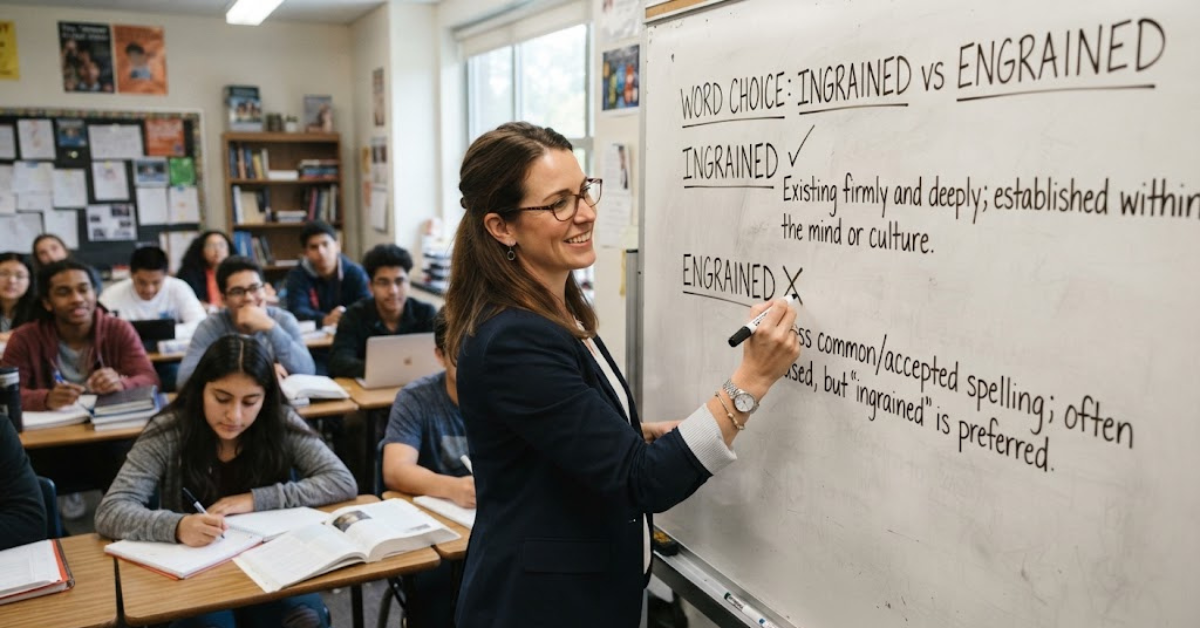 WORD CHOICE: INGRAINED vs ENGRAINED
INGRAINED ✓
Existing firmly and deeply; established within
the mind or culture.
ENGRAINED X
common/accepted spelling; often
but "ingrained" is preferred.